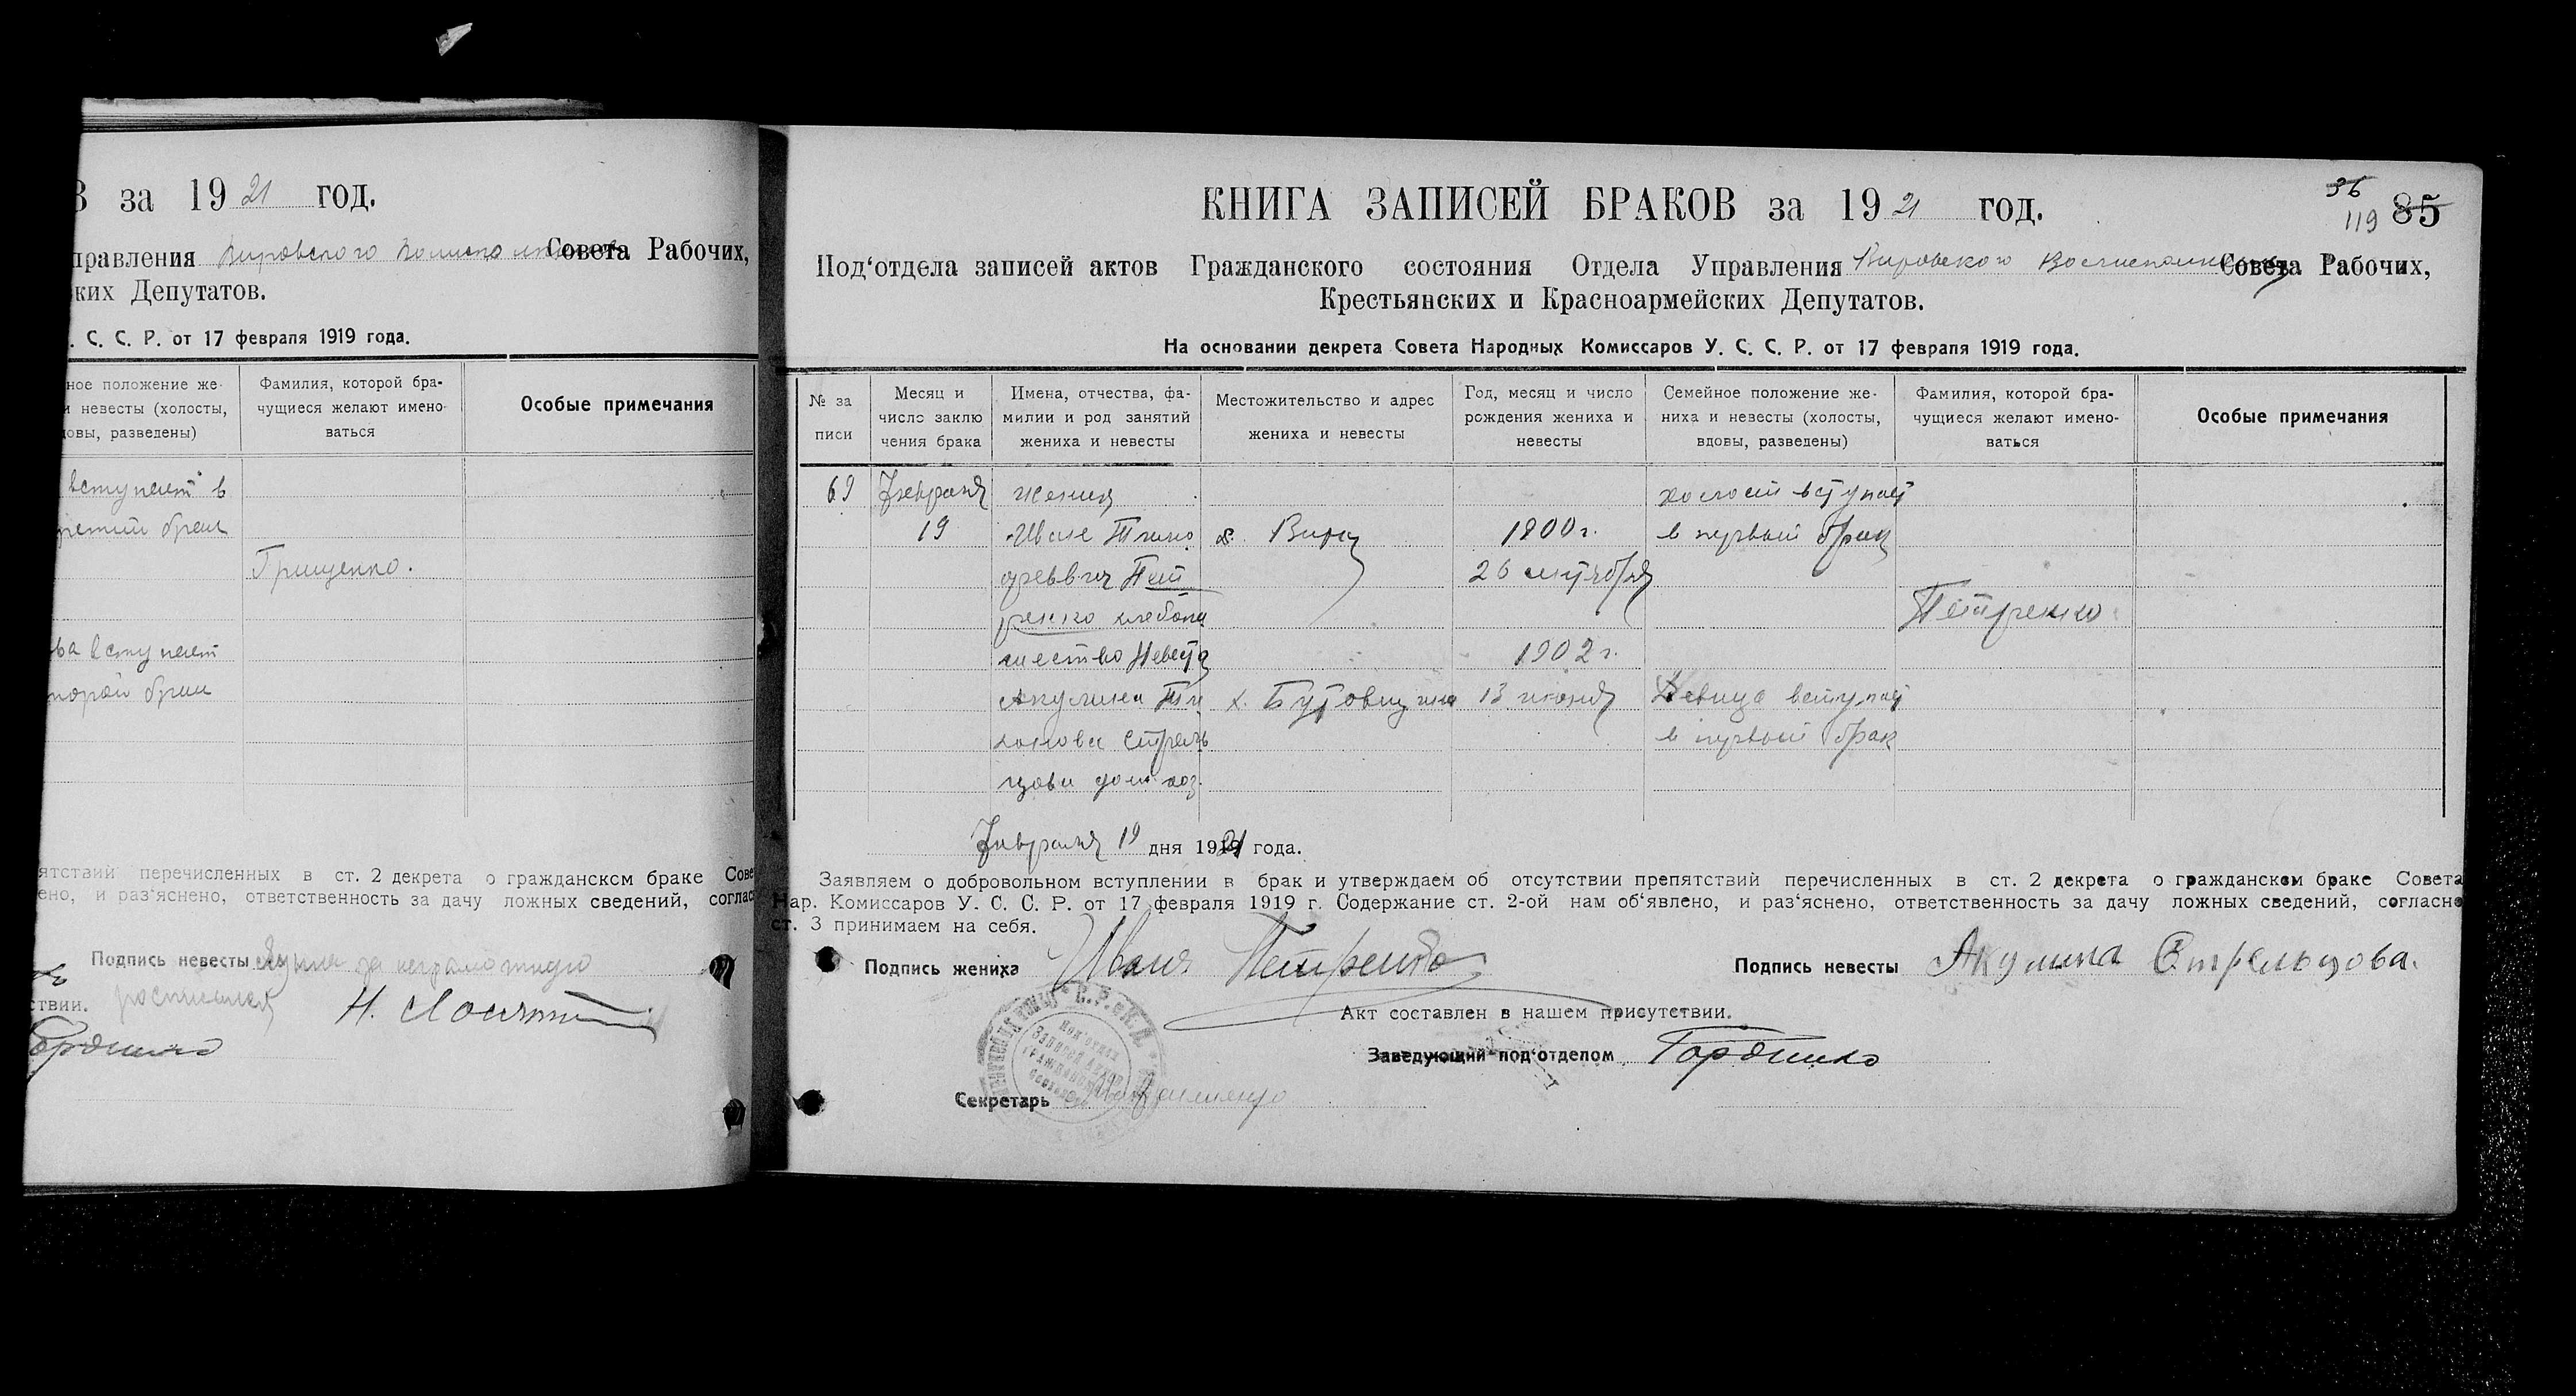 В за 1921 год.
правления Вировского Волисполкома Совета Рабочих,
ких Депутатов.
. С. С. Р. от 17 февраля 1919 года.
ное положение же-
и невесты (холосты,
довы, разведены)
Фамилия, которой бра-
чущиеся желают имено-
ваться
Особые примечания
вступает в
третий брак
Грищенко.
ва вступает
второй брак
ятствий перечисленных в ст. 2 декрета о гражданском браке Сове
ено, и раз‘яснено, ответственность за дачу ложных сведений, соглас
Подпись невесты за неграмотную
расписался
Н.
ствии.
Гордиенко
36
119 85
КНИГА ЗАПИСЕЙ БРАКОВ за 1921 год.
Под‘отдела записей актов Гражданского состояния Отдела Управления Вировского Волисполкома Совета Рабочих,
Крестьянских и Красноармейских Депутатов.
На основании декрета Совета Народных Комиссаров У. С. С. Р. от 17 февраля 1919 года.
№ за
писи
Месяц и
число заклю
чения брака
Имена, отчества, фа-
милии и род занятий
жениха и невесты
Местожительство и адрес
жениха и невесты
Год, месяц и число
рождения жениха и
невесты
Семейное положение же-
ниха и невесты (холосты,
вдовы, разведены)
Фамилия, которой бра-
чущиеся желают имено-
ваться
Особые примечания
69 Февраля жених холост вступает
19 Иван Тимо с. Виры 1900 г. в первый брак
феевич Пет 26 сентября
ренко хлебопа Петренко
шество Невеста 1902 г.
Акулина Ти х. Бутовщина 13 июня Девица вступает
хонова Стрель в первый брак
цова дом. хоз.
Февраля 19 дня 1921 года.
Заявляем о добровольном вступлении в брак и утверждаем об отсутствии препятствий перечисленных в ст. 2 декрета о гражданском браке Совета
Нар. Комиссаров У. С. С. Р. от 17 февраля 1919 г. Содержание ст. 2-ой нам об‘явлено, и раз‘яснено, ответственность за дачу ложных сведений, согласно
ст. 3 принимаем на себя.
Подпись жениха Иван Петренко Подпись невесты Акулина Стрельцова.
Акт составлен в нашем присутствии.
Заведующий под‘отделом Гордиенко
Секретарь